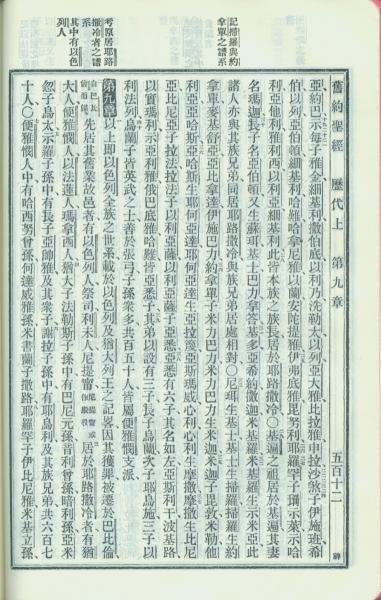 舊約聖經 歷代上 第九章 五百十二
記掃羅與約
拿單之譜系
考原居耶路
撒冷者之譜
系
其中有以色
列人
亞約巴示每子雅金細基利撒伯底以利乃洗勒大以列亞大雅比拉雅申拉沙煞子伊施班希
伯以列亞伯頓細基利哈難哈拿尼雅以蘭安陀提雅伊弗底雅毘努利耶羅罕子珊示萊示哈
利亞他利雅雅利西以利亞細基利此皆本族之族長居於耶路撒冷○基遍之祖居於基遍其妻
名瑪迦長子名亞伯頓又生蘇珥基士巴力拿答基多亞希約撒迦米基羅米基羅生示米亞此
諸人亦與其族兄弟同居耶路撒冷與族兄弟居處相對○尼珥生基士基士生掃羅掃羅生約
拿單麥基舒亞亞比拿達伊施巴力約拿單子米力巴力米力巴力生米迦米迦子毘敦米勒他
利亞亞哈斯亞哈斯生耶何亞達耶何亞達生亞拉篾亞斯瑪威心利心利生摩撒摩撒生比尼
亞比尼亞子拉法拉法子以利亞薩以利亞薩子亞悉亞悉有六子其名如左亞斯利干波基路
以實瑪利示亞利雅俄巴底雅哈難皆亞悉子其弟以設有三子長子烏蘭次子耶烏施三子以
利法列烏蘭子皆英武之士善於張弓子孫衆多共百五十人皆屬便雅憫支派
第九章 以上即以色列全族之世系載於以色列及猶大列王之記畧因其獲罪被遷於巴比倫
先居其舊業故邑者有以色列人祭司利未人尼提甯居於耶路撒冷者有猶
大人便雅憫人以法蓮人瑪拿西人猶大子法勒斯子孫中有巴尼元孫音利曾孫暗利孫亞米
忽子烏太示羅子孫中有長子亞帥雅及其衆子謝拉子孫中有耶烏利及其族兄弟共六百九
十人○便雅憫人中有哈西努曾孫何達威雅孫米書蘭子撒路耶羅罕子伊比尼雅米基立孫